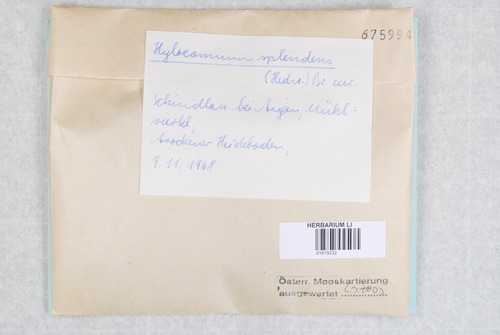 675994
Hylocomium splendens
(Hedw.) Br. eur.
Schindlau bei Aigen, Mühl=
viertel,
trockener Heideboden,
9. 11. 1968
HERBARIUM LI
Österr. Mooskartierung
ausgewertet